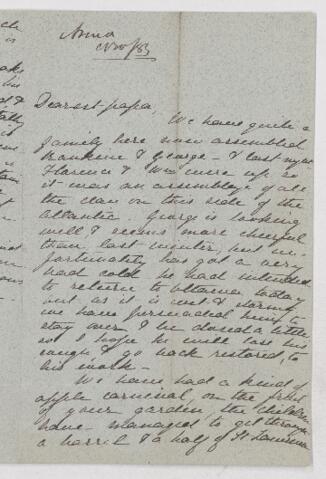 Anna
Nov/83
Dearest papa
We have quite a
family here now assembled
Rankine & George - & last night
Florence & Wm were up so
it was an assemblage of all
the clan on this side of the
Atlantic. George is looking
well & seems more cheerful
than last winter, but un-
fortunately has got a very
bad cold he had intended
to return to Ottawa today
but as it is wet & stormy
we have persuaded him to
stay over & be dosed a little
so I hope he will lose his
cough & go back restored, to
his work -
We have had a kind of
apple carnival, on the fruit
of your garden, the children
have managed to get through
a barril & a half of St Lawrence